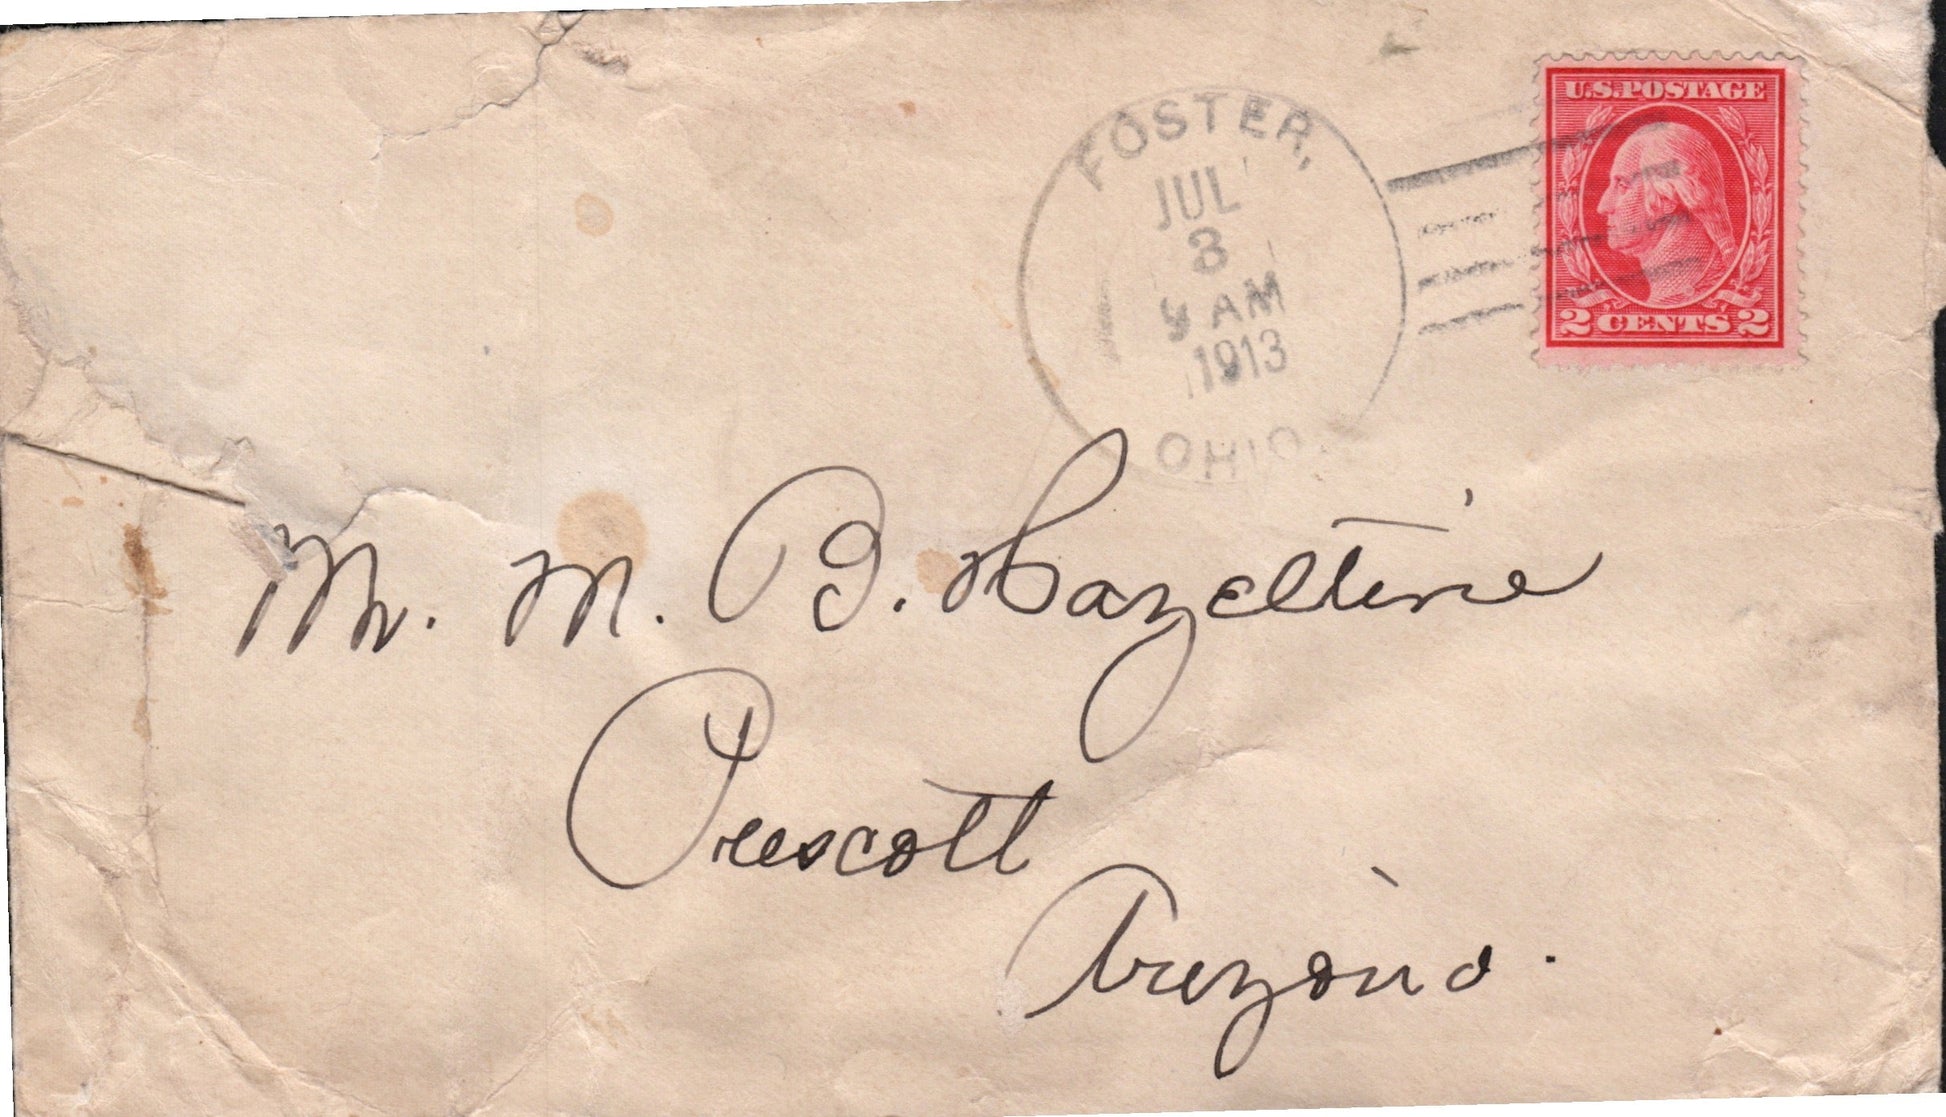 FOSTER,
JUL
3
9 AM
1913
OHIO.
U.S. POSTAGE
2 CENTS 2
Mr. M. B. Hazeltine
Prescott
Arizona.